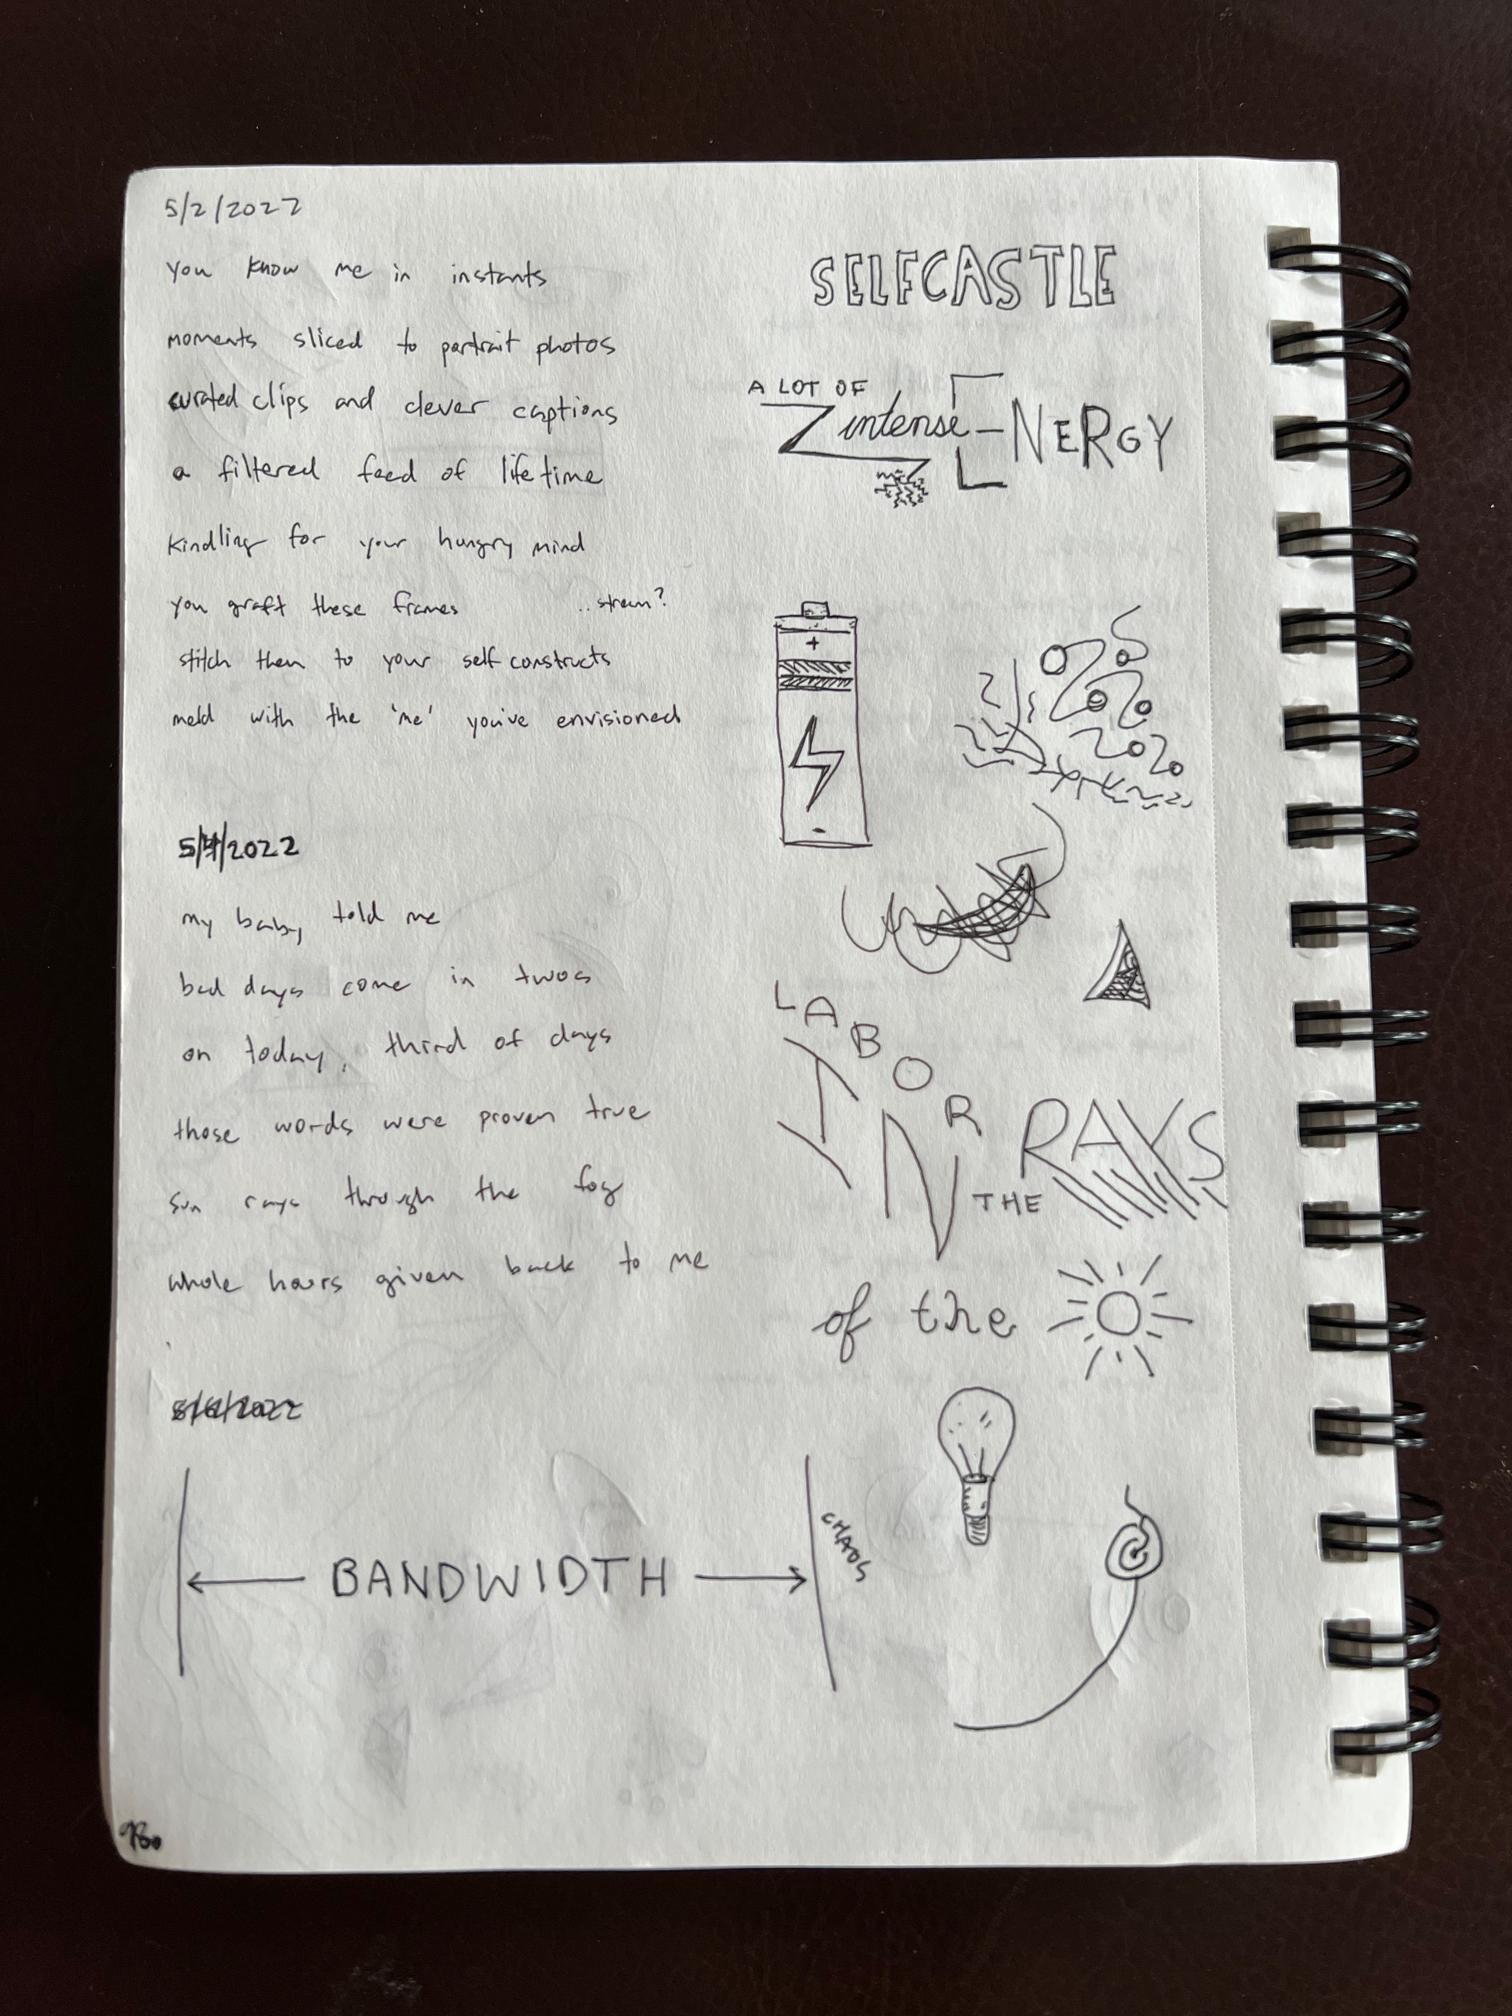 5/2/2022
you know me in instants
moments sliced to portrait photos
curated clips and clever captions
a filtered feed of lifetime
kindling for your hungry mind
you graft these frames
..stream?
stitch them to your self constructs
meld with the 'me' you've envisioned
5/4/2022
my baby told me
bad days come in twos
on today, third of days
those words were proven true
sun rays through the fog
whole hours given back to me
5/6/2022
BANDWIDTH
CHAOS
SELFCASTLE
A LOT OF
intense ENERGY
+
-
LABOR
IN THE RAYS
of the